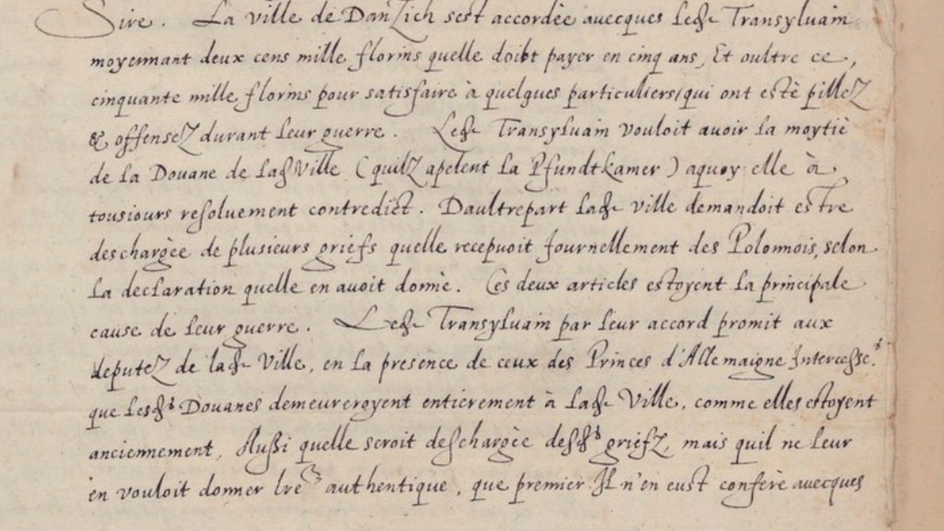 Sire. La ville de Danzich sest accordée auecques led. Transyluain
moyennant deux cens mille florins quelle doibt payer en cinq ans, Et oultre ce,
cinquante mille florins pour satisfaire à quelques particuliers/qui ont esté pillez
& offensez durant leur guerre. Led. Transyluain vouloit auoir la moytié
de la Douane de lad. Ville (quilz apelent la Pfundtkamer) aquoy elle à
tousiours resoluement contredict. Daultrepart lad. ville demandoit estre
deschargée de plusieurs griefs quelle recepuoit Journellement des Polonnois, selon
la declaration quelle en auoit donné. Ces deux articles estoyent la principale
cause de leur guerre. Led. Transyluain par leur accord promit aux
deputez de lad. Ville, en la presence de ceux des Princes d'Allemaigne Intercesse.rs
que lesd.s Douanes demeureroyent entierement à lad. Ville, comme elles estoyent
anciennement, Aussi quelle seroit deschargée desd.s griefz, mais quil ne leur
en vouloit donner lre authentique, que premier Il n'en eust conferé auecques